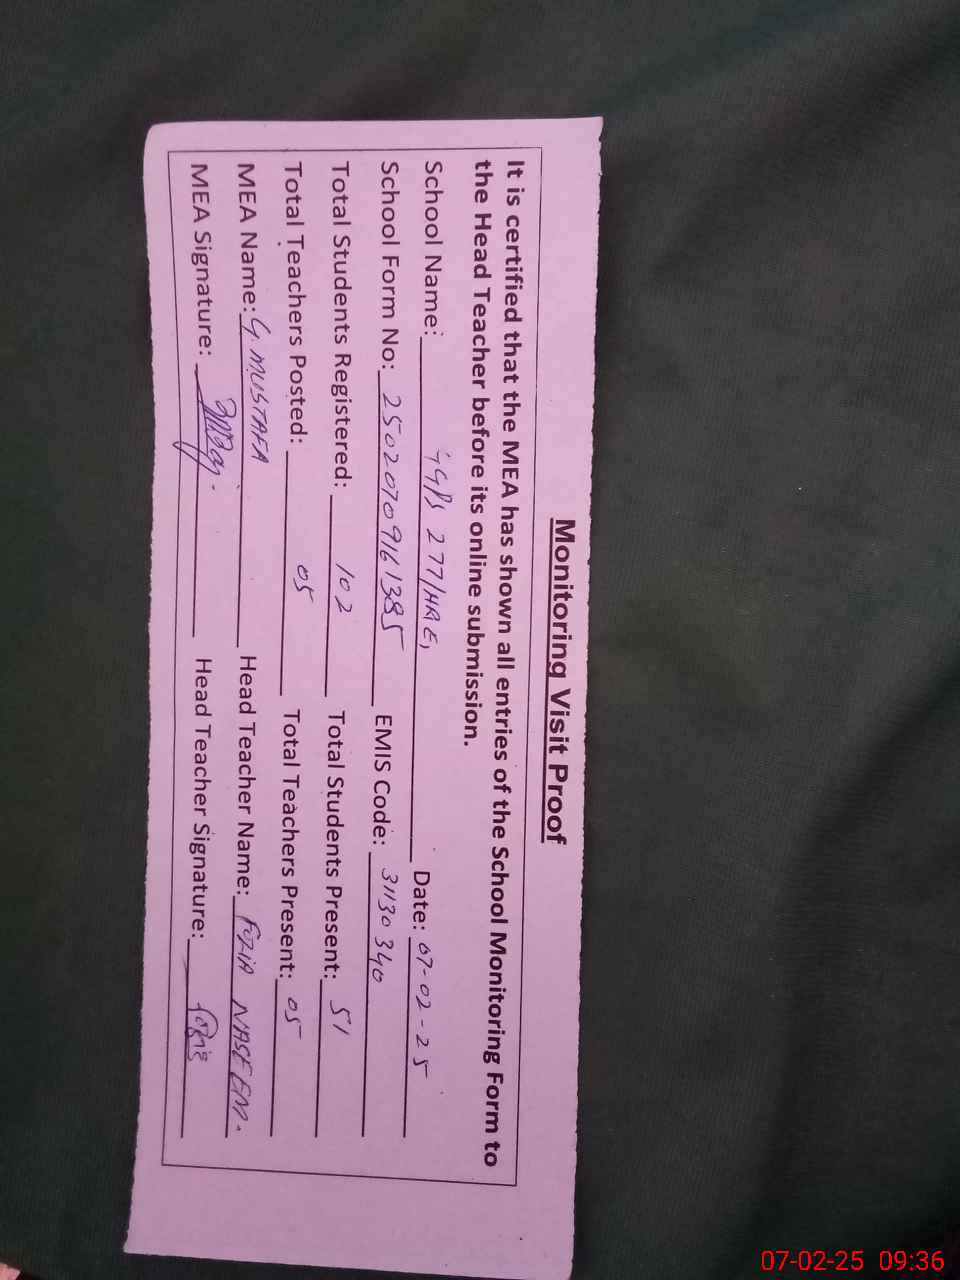 Monitoring Visit Proof
It is certified that the MEA has shown all entries of the School Monitoring Form to
the Head Teacher before its online submission.
School Name: GGPS 277/HR E, Date: 07-02-25
School Form No: 25020709161385 EMIS Code: 31130340
Total Students Registered: 102 Total Students Present: 51
Total Teachers Posted: 05 Total Teachers Present: 05
MEA Name: G. MUSTAFA Head Teacher Name: FOZIA NASEEM.
MEA Signature: Head Teacher Signature:
07-02-25 09:36